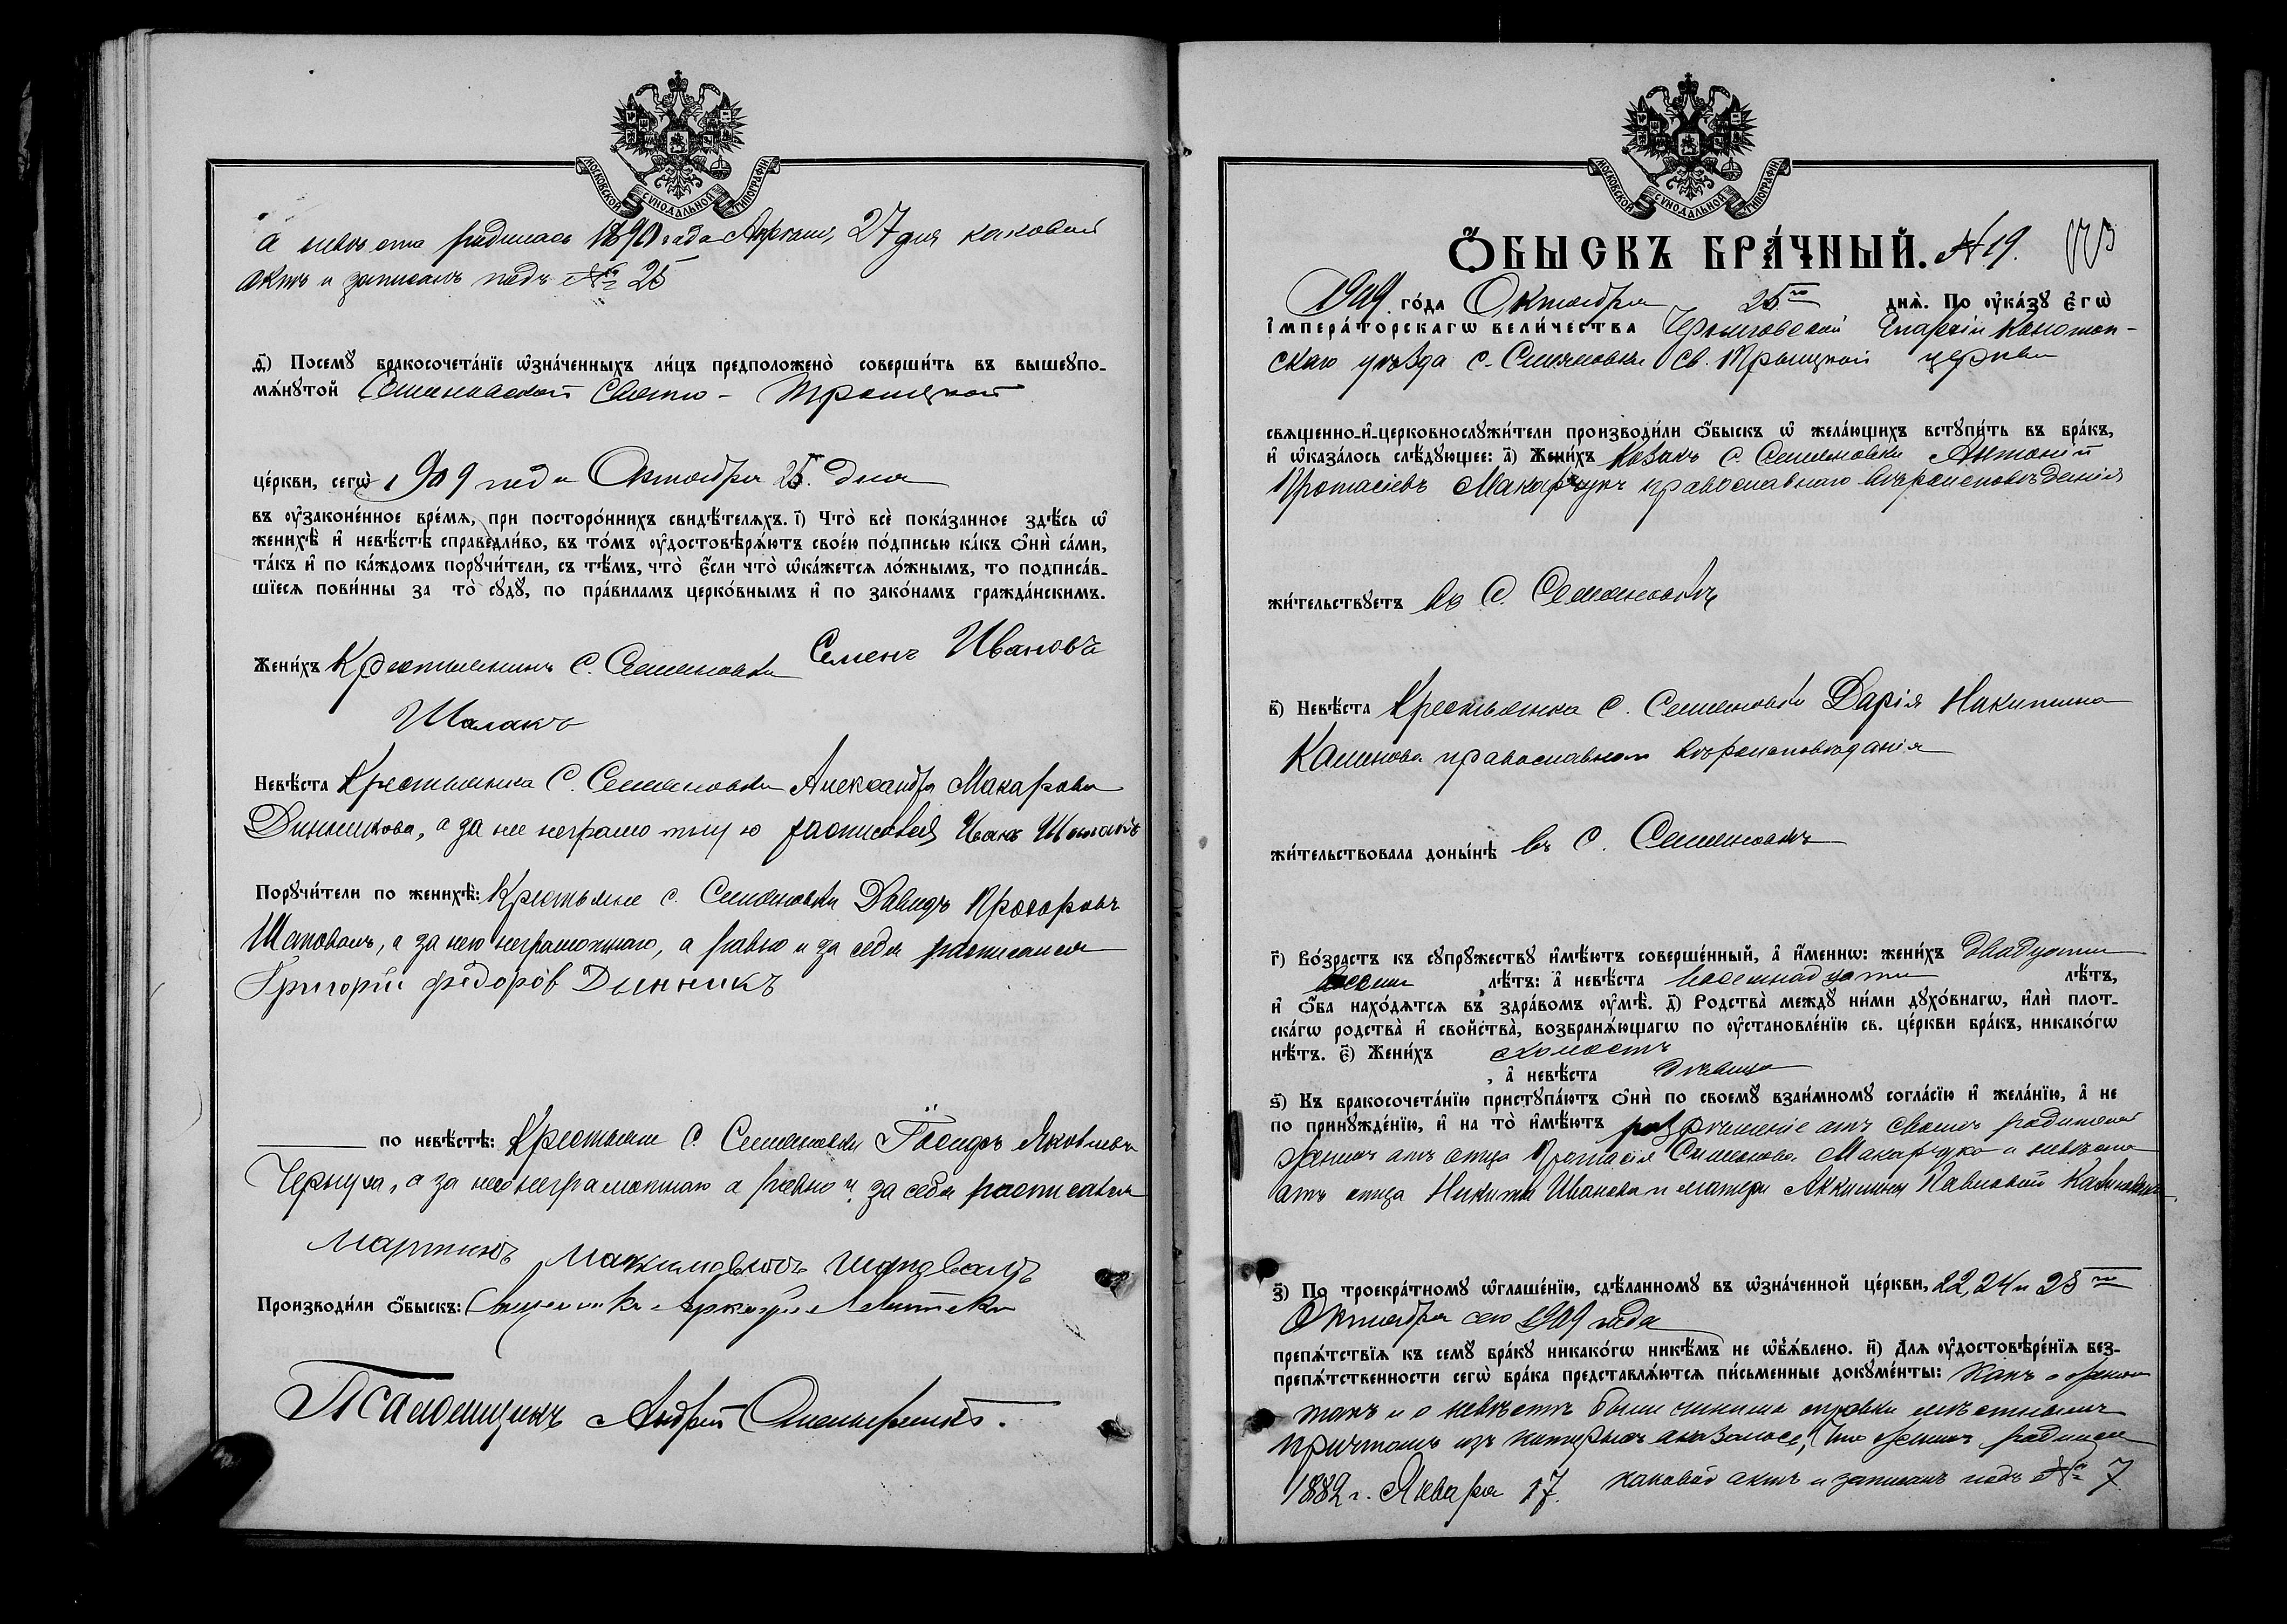 МОСКОВСКОЙ СѴНОДАЛЬНОЙ ТИПОГРАФІИ
а невѣста родилась 1890 года Апрѣля 27 дня каковой
актъ и записанъ подъ № 25
д҃і) Посемꙋ̀ бракосочета́нїе ѡ҆зна́ченныхъ ли́цъ предположено̀ соверши́ть въ вышеꙋпо-
мѧ́нꙋтой Семеновской Свято - Троицкой
це́ркви, сегѡ̀ 1909 года Октября 25. дня
въ ᲂу҆законе́нное вре́мѧ, при посторо́ннихъ свидѣ́телѧхъ. і҃) Что̀ всѐ пока́занное здѣ́сь ѡ҆
женихѣ̀ и҆ невѣ́стѣ справедли́во, въ то́мъ ᲂу҆достовѣрѧ́ютъ свое́ю по́дписью ка́къ ѻ҆нѝ са́ми,
та́къ и҆ по ка́ждомъ порꙋчи́тели, съ тѣ́мъ, что̀ є҆́сли что̀ ѡ҆ка́жетсѧ ло́жнымъ, то подписа́в-
шїесѧ пови́нны за то̀ сꙋдꙋ̀, по пра́виламъ церко́внымъ и҆ по зако́намъ гражда́нскимъ.
Жени́хъ Крестьянинъ с. Семеновки Семенъ Ивановъ
Шалакъ
Невѣ́ста Крестьянка с. Семеновки Александра Макарова
Динникова, а за нее неграмотную росписался Иванъ
Порꙋчи́тели по женихѣ̀: Крестьяне с. Семеновки Давидъ Прохоровъ
Шаповалъ, а за него неграмотнаго, а равно и за себя росписался
Григорій Федоровъ Дынникъ
по невѣ́стѣ: Крестьяне с. Семеновки Іосифъ Яковлевъ
Чернуха, а за него неграмотнаго а равно и за себя росписался
Мартинъ Шаповалъ
Производи́ли ѻ҆́быскъ: Священникъ Аркадій
Псаломщикъ Андрей
МОСКОВСКОЙ СѴНОДАЛЬНОЙ ТИПОГРАФІИ
Ѻ҆БЫСКЪ БРА́ЧНЫЙ. № 19.
1909 го́да Октября 25го днѧ̀. По ᲂу҆ка́зꙋ є҆гѡ̀
і҆мпера́торскагѡ вели́чества Черниговской Епархіи Конотоп-
скаго уѣзда с. Семяновки Св. Троицкой церкви
свѧщенно-и҆-церковнослꙋжи́тели производи́ли ѻ҆́быскъ ѡ҆ жела́ющихъ встꙋпи́ть въ бра́къ,
и҆ ѡ҆каза́лось слѣ́дꙋющее: а҃) Жени́хъ Козакъ с. Семеновки Антоній
Протасіевъ Макарчукъ православнаго вѣроисповѣданія
жи́тельствꙋетъ въ с. Семеновкѣ
в҃) Невѣ́ста Крестьянка с. Семеновки Дарія Никитина
Калинова православнаго вѣроисповѣданія
жи́тельствовала доны́нѣ въ с. Семеновкѣ
г҃) Во́зрастъ къ сꙋпрꙋ́жествꙋ и҆мѣ́ютъ соверше́нный, а҆ и҆́меннѡ: жени́хъ двадцати
восьми лѣ́тъ: а҆ невѣ́ста восемнадцати лѣ́тъ,
и҆ ѻ҆́ба нахо́дѧтсѧ въ здра́вомъ ᲂу҆мѣ̀. д҃) Родства̀ междꙋ̀ ни́ми дꙋхо́внагѡ, и҆лѝ плот-
ска́гѡ родства̀ и҆ свойства̀, возбранѧ́ющагѡ по ᲂу҆становле́нїю св. це́ркви бра́къ, никако́гѡ
нѣ́тъ. є҃) Жени́хъ холостъ
, а҆ невѣ́ста дѣвица
ѕ҃) Къ бракосочета́нїю пристꙋпа́ютъ ѻ҆нѝ по своемꙋ̀ взаи́мномꙋ согла́сїю и҆ жела́нїю, а҆ не
по принꙋжде́нїю, и҆ на то̀ и҆мѣ́ютъ разрѣшеніе отъ своихъ родителей
женихъ отъ отца Протасія Семенова Макарчука а невѣста
отъ отца Никиты Иванова и матери Акилины Павловой Калиновыхъ
з҃) По троекра́тномꙋ ѡ҆глаше́нїю, сдѣ́ланномꙋ въ ѡ҆зна́ченной це́ркви, 22, 24 и 25го
Октября сего 1909 года
препѧ́тствїѧ къ семꙋ̀ бра́кꙋ никако́гѡ никѣ́мъ не ѡ҆б̾ѧ́влено. и҃) Для ᲂу҆достовѣре́нїѧ без-
препѧ́тственности сегѡ̀ бра́ка представлѧ́ютсѧ пи́сьменные докꙋме́нты: какъ о женихѣ
такъ и о невѣстѣ были чинимы справки мѣстнымъ
причтомъ изъ которыхъ оказалось, что женихъ родился
1882 г. Января 17. каковой актъ и записанъ подъ № 7